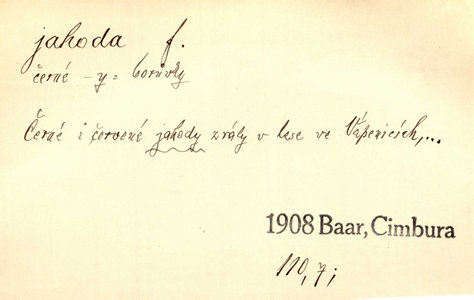 jahoda f.
černé -y = borůvky
Černé i červené jahody zrály v lese ve Vápenicích,...
1908 Baar, Cimbura
110, 7;